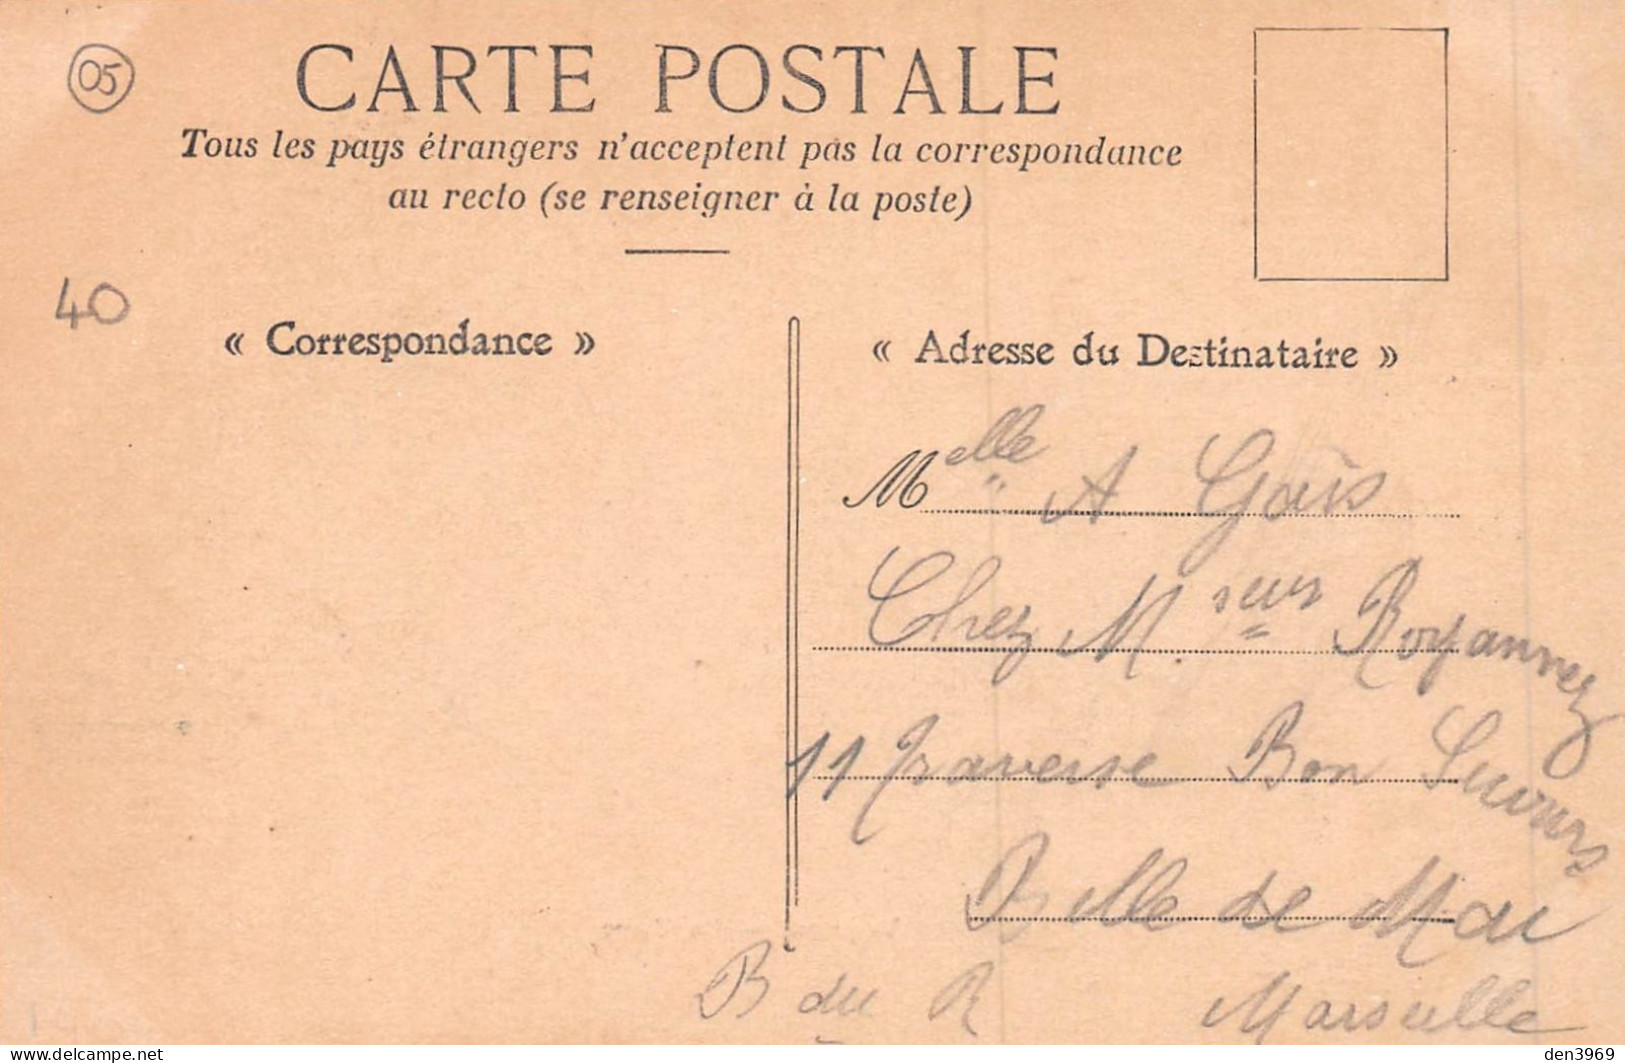 05
CARTE POSTALE
Tous les pays étrangers n'acceptent pas la correspondance
au recto (se renseigner à la poste)
40
« Correspondance »
« Adresse du Destinataire »
Melle A Gaïs
Chez M.sieurs Royannez
11 Traverse Bon Secours
Belle de Mai
B du R Marseille
den3969